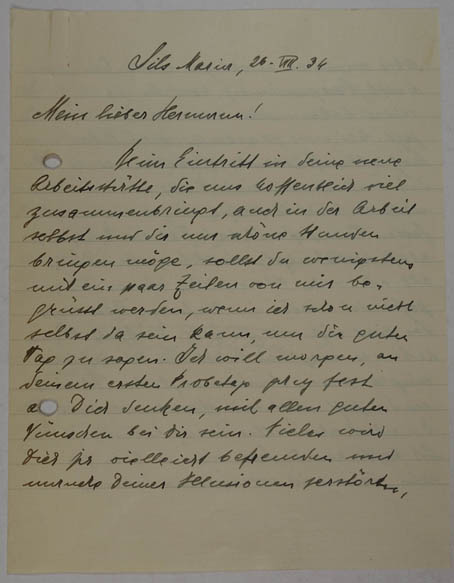 Sils Maria, 26. VIII. 34
Mein lieber Hermann!
Beim Eintritt in deine neue
Arbeitsstätte, die uns hoffentlich viel
zusammenbringt, auch in der Arbeit
selbst und die uns schöne Stunden
bringen möge, sollst du wenigstens
mit ein paar Zeilen von mir be-
grüsst werden, wenn ich schon nicht
selbst da sein kann, um dir guten
Tag zu sagen. Ich will morgen, an
deinem ersten Probetag ganz fest
an Dich denken, mit allen guten
Wünschen bei dir sein. Vieles wird
Dich ja vielleicht befremden und
manche Deiner Illusionen zerstören,